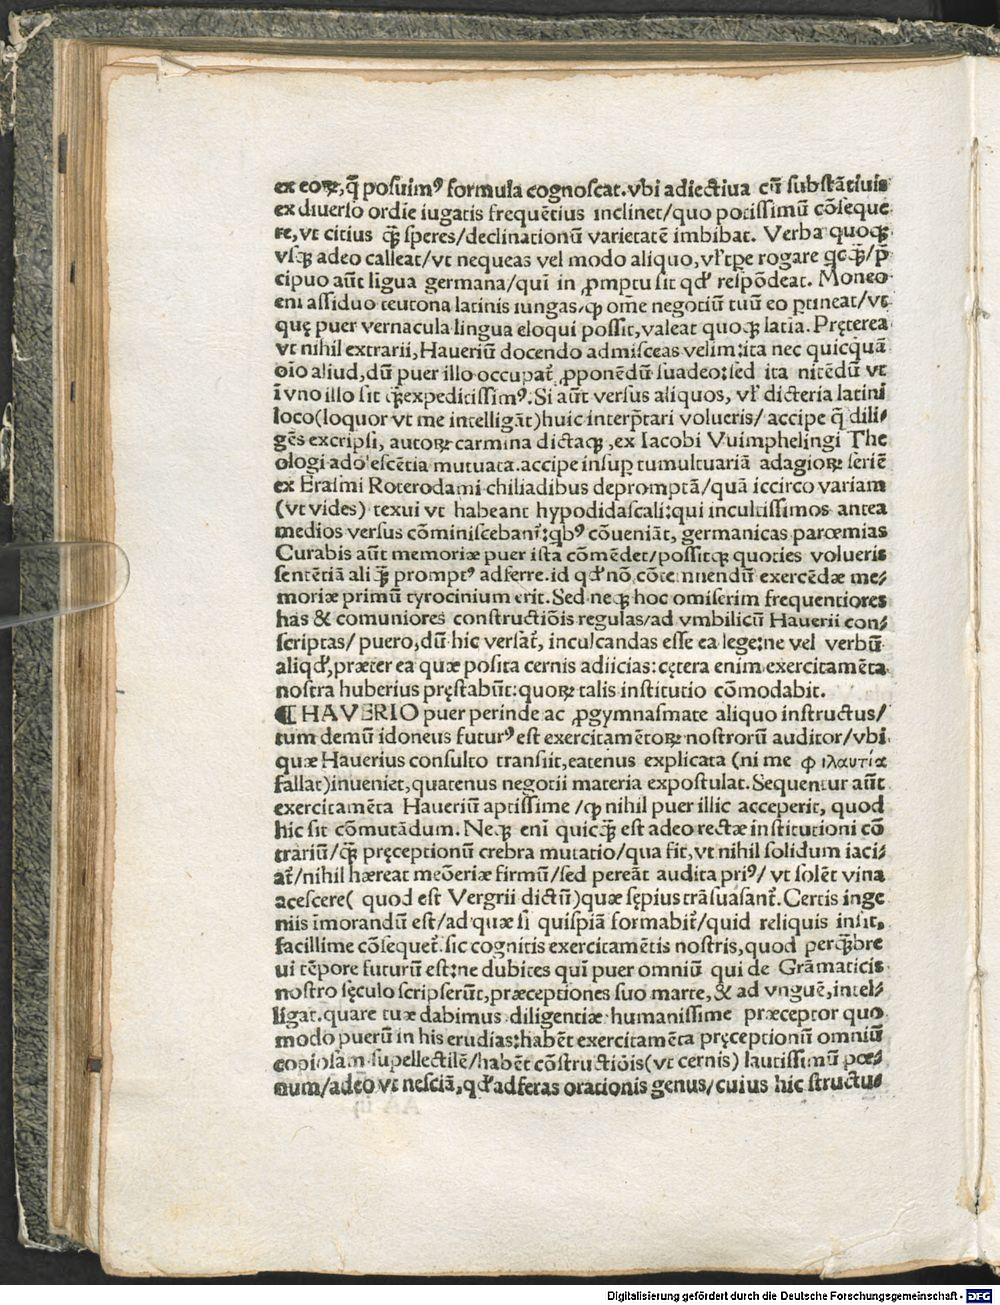 ex eoꝝ, q̃ posuimꝰ formula cognoscat. vbi adiectiua cũ substãtiuis
ex diuerso ordĩe iugatis frequẽtius inclinet/quo potissimũ cõseque
re, vt citius q̃ꝫ speres/declinationũ varietatẽ imbibat. Verba quoqꝫ
vsqꝫ adeo calleat/vt nequeas vel modo aliquo, vl' tp̃e rogare qcq̃ꝫ/p̃
cipuo aũt ligua germana/qui in ꝓmptu sit qd' respõdeat. Moneo
eni assiduo teutona latinis iungas/ꝙ om̃e negotiũ tuũ eo ptineat/vt
quę puer vernacula lingua eloqui possit, valeat quoqꝫ latia. Pręterea
vt nihil extrarii, Haueriũ docendo admisceas velim: ita nec quicquã
oĩo aliud, dũ puer illo occupat̃ ꝓponẽdũ suadeo: sed ita nitẽdũ vt
ĩ vno illo sit q̃ꝫexpeditissimꝰ. Si aũt versus aliquos, vl' dicteria latini
loco(loquor vt me intelligãt)huic interp̃tari volueris/ accipe q̃ dili⸗
gẽs excripsi, autoꝝ carmina dictaqꝫ, ex Iacobi Vuimphelingi The
ologi adolescẽtia mutuata. accipe insuꝑ tumultuariã adagioꝝ seriẽ
ex Erasmi Roterodami chiliadibus depromptã/quã iccirco variam
(vt vides) texui vt habeant hypodidascali: qui incultissimos antea
medios versus cõminiscebant̃: qbꝰ cõueniãt, germanicas parœmias
Curabis aũt memoriæ puer ista cõmẽdet/possitqꝫ quoties volueris
sentẽtiã ali q̃ꝫ promptꝰ adferre. id qd' nõ cõtemnendũ exercẽdæ me⸗
moriæ primũ tyrocinium erit. Sed neqꝫ hoc omiserim frequentiores
has & comuniores constructiõis regulas/ad vmbilicũ Hauerii con⸗
scriptas/ puero, dũ hic versat̃, inculcandas esse ea lege: ne vel verbũ
aliqd', præter ea quæ posita cernis adiicias: cętera enim exercitamẽta
nostra huberius pręstabũt: quoꝝ talis institutio cõmodabit.
¶ HAVERIO puer perinde ac ꝓgymnasmate aliquo instructus/
tum demũ idoneus futurꝰ est exercitamẽtoꝝ nostrorũ auditor/vbi
quæ Hauerius consulto transiit, eatenus explicata (ni me φιλαυτία
fallat)inueniet, quatenus negotii materia expostulat. Sequentur aũt
exercitamẽta Haueriũ aptissime /ꝙ nihil puer illic acceperit, quod
hic sit cõmutãdum. Neqꝫ eni quicq̃ꝫ est adeo rectæ institutioni cõ
trariũ/q̃ꝫ pręceptionũ crebra mutatio/qua fit, vt nihil solidum iaci⸗
at̃/nihil hæreat meõeriæ firmũ/sed pereãt audita priꝰ/ vt solẽt vina
acescere( quod est Vergrii dictũ)quæ sępius trãsuasant̃. Certis inge
niis ĩmorandũ est/ad quæ si quispiã formabit̃/quid reliquis insit,
facillime cõsequet̃. sic cognitis exercitamẽtis nostris, quod perq̃ꝫbre
ui tẽpore futurũ est: ne dubites quĩ puer omniũ qui de Grãmaticis
nostro sęculo scripserũt, præceptiones suo marte, & ad vnguẽ, intel⸗
ligat. quare tuæ dabimus diligentiæ humanissime præceptor quo
modo puerũ in his erudias: habẽt exercitamẽta pręceptionũ omniũ
copiosam supellectilẽ/habẽt cõstructiõis(vt cernis) lautissimũ pœ⸗
num/adeo vt nesciã, qd' adferas orationis genus/cuius hic structu⸗
Digitalisierung gefördert durch die Deutsche Forschungsgemeinschaft - DFG